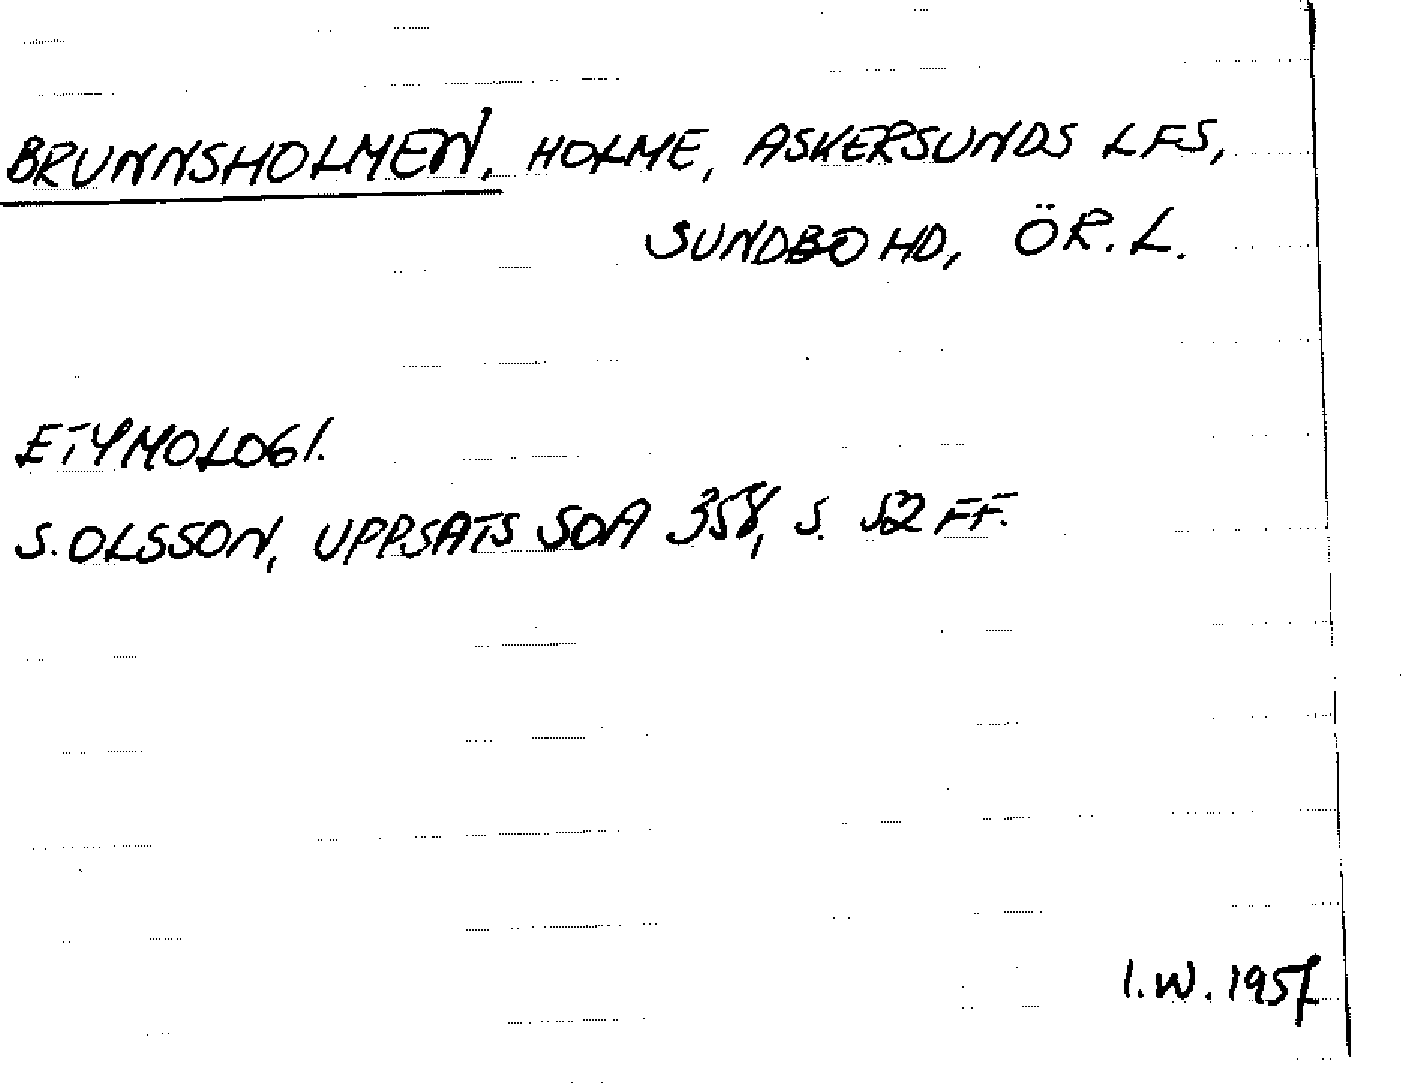 BRUNNSHOLMEN, HOLME, ASKERSUNDS LFS,
SUNDBO HD, ÖR. L.
ETYMOLOGI.
S. OLSSON, UPPSATS SOA 358, S. 52 FF.
I.W. 1957